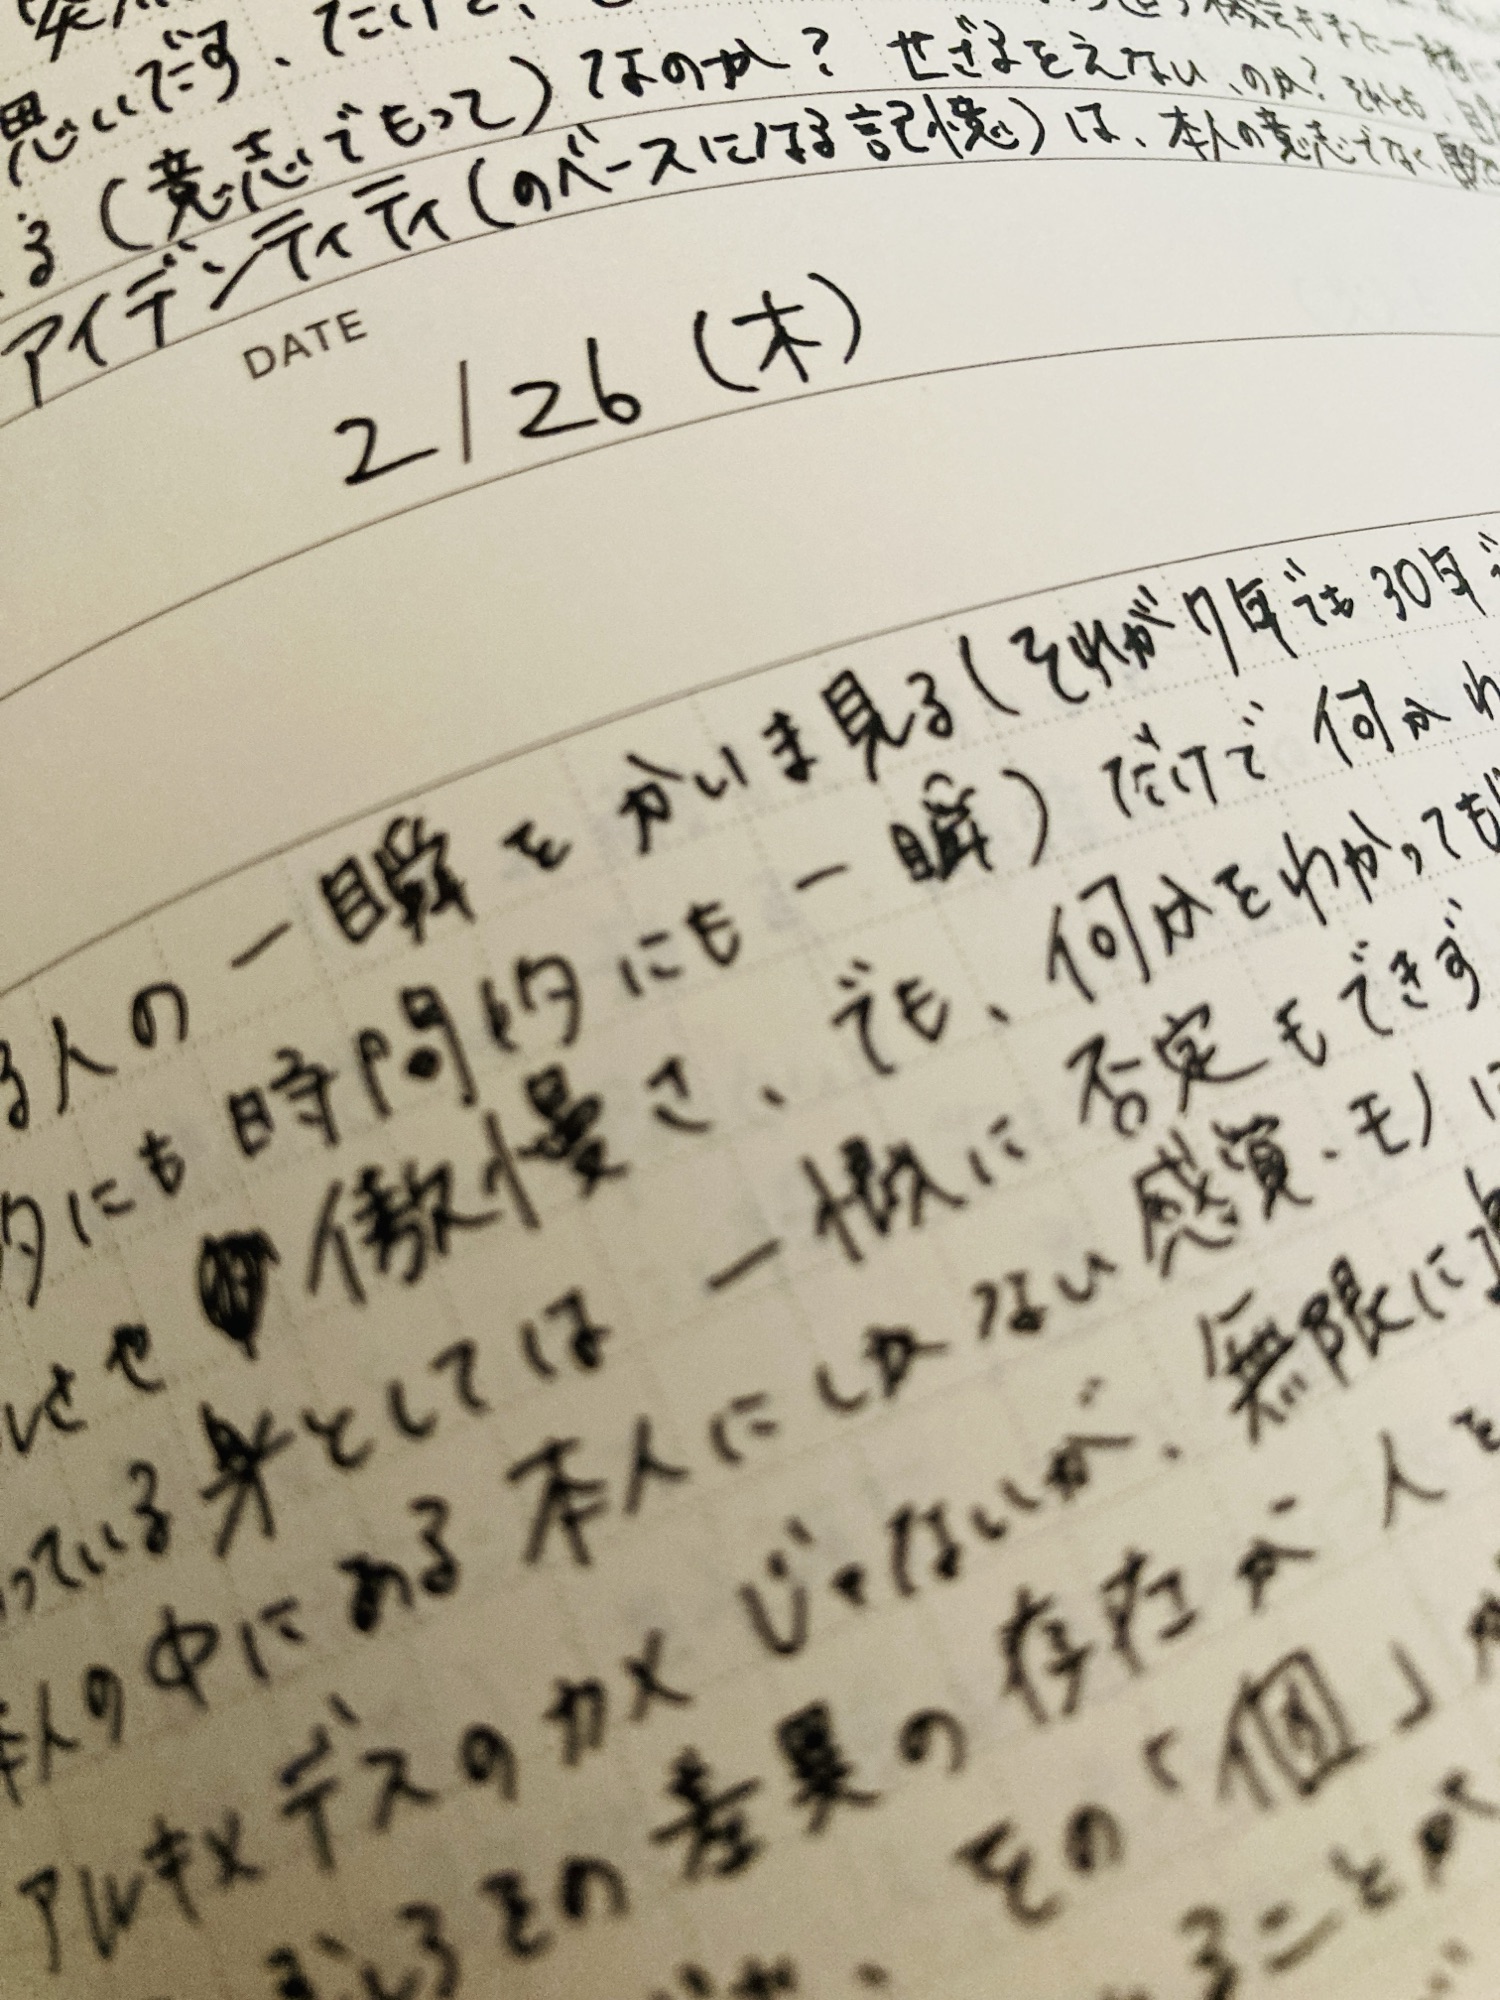 思いだす、だけど、
る(意志でもって)なのか? せざるをえない、のか? それとも、
アイデンティティ(のベースになる記憶)は、本人の意志でなく、
DATE
2/26(木)
る人の一瞬をかいま見る(それが7年でも30年で
的にも時間的にも一瞬)だけで何かわ
しさせ 傲慢さ、でも、何かをわかっても
っている身としては一概に否定もできず
本人の中にある本人にしかない感覚・モノに
アルキメデスのカメじゃないが、無限に
むしろその差異の存在が人を
その「個」が
ることが